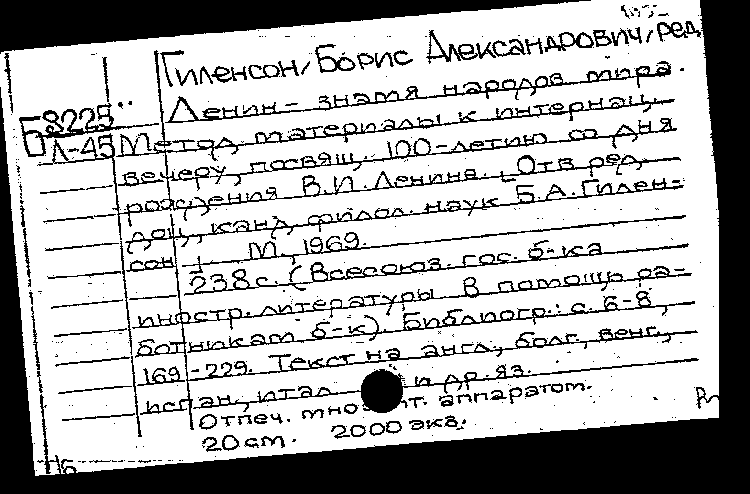 Гиленсон, Борис Александрович, ред.
Б 8225
Л-45
Ленин – знамя народов мира.
Метод. материалы к интернац.
вечеру, посвящ. 100-летию со дня
рождения В.И. Ленина. [Отв. ред.
доц., канд. филол. наук Б.А. Гилен-
сон]. М., 1969.
238 с. (Всесоюз. гос. б-ка
иностр. литературы. В помощь ра-
ботникам б-к). Библиогр.: с. 6-8,
169-229. Текст на англ., болг., венг.,
испан., итал. и др. яз.
Отпеч. множит. аппаратом.
20 см. 2000 экз.